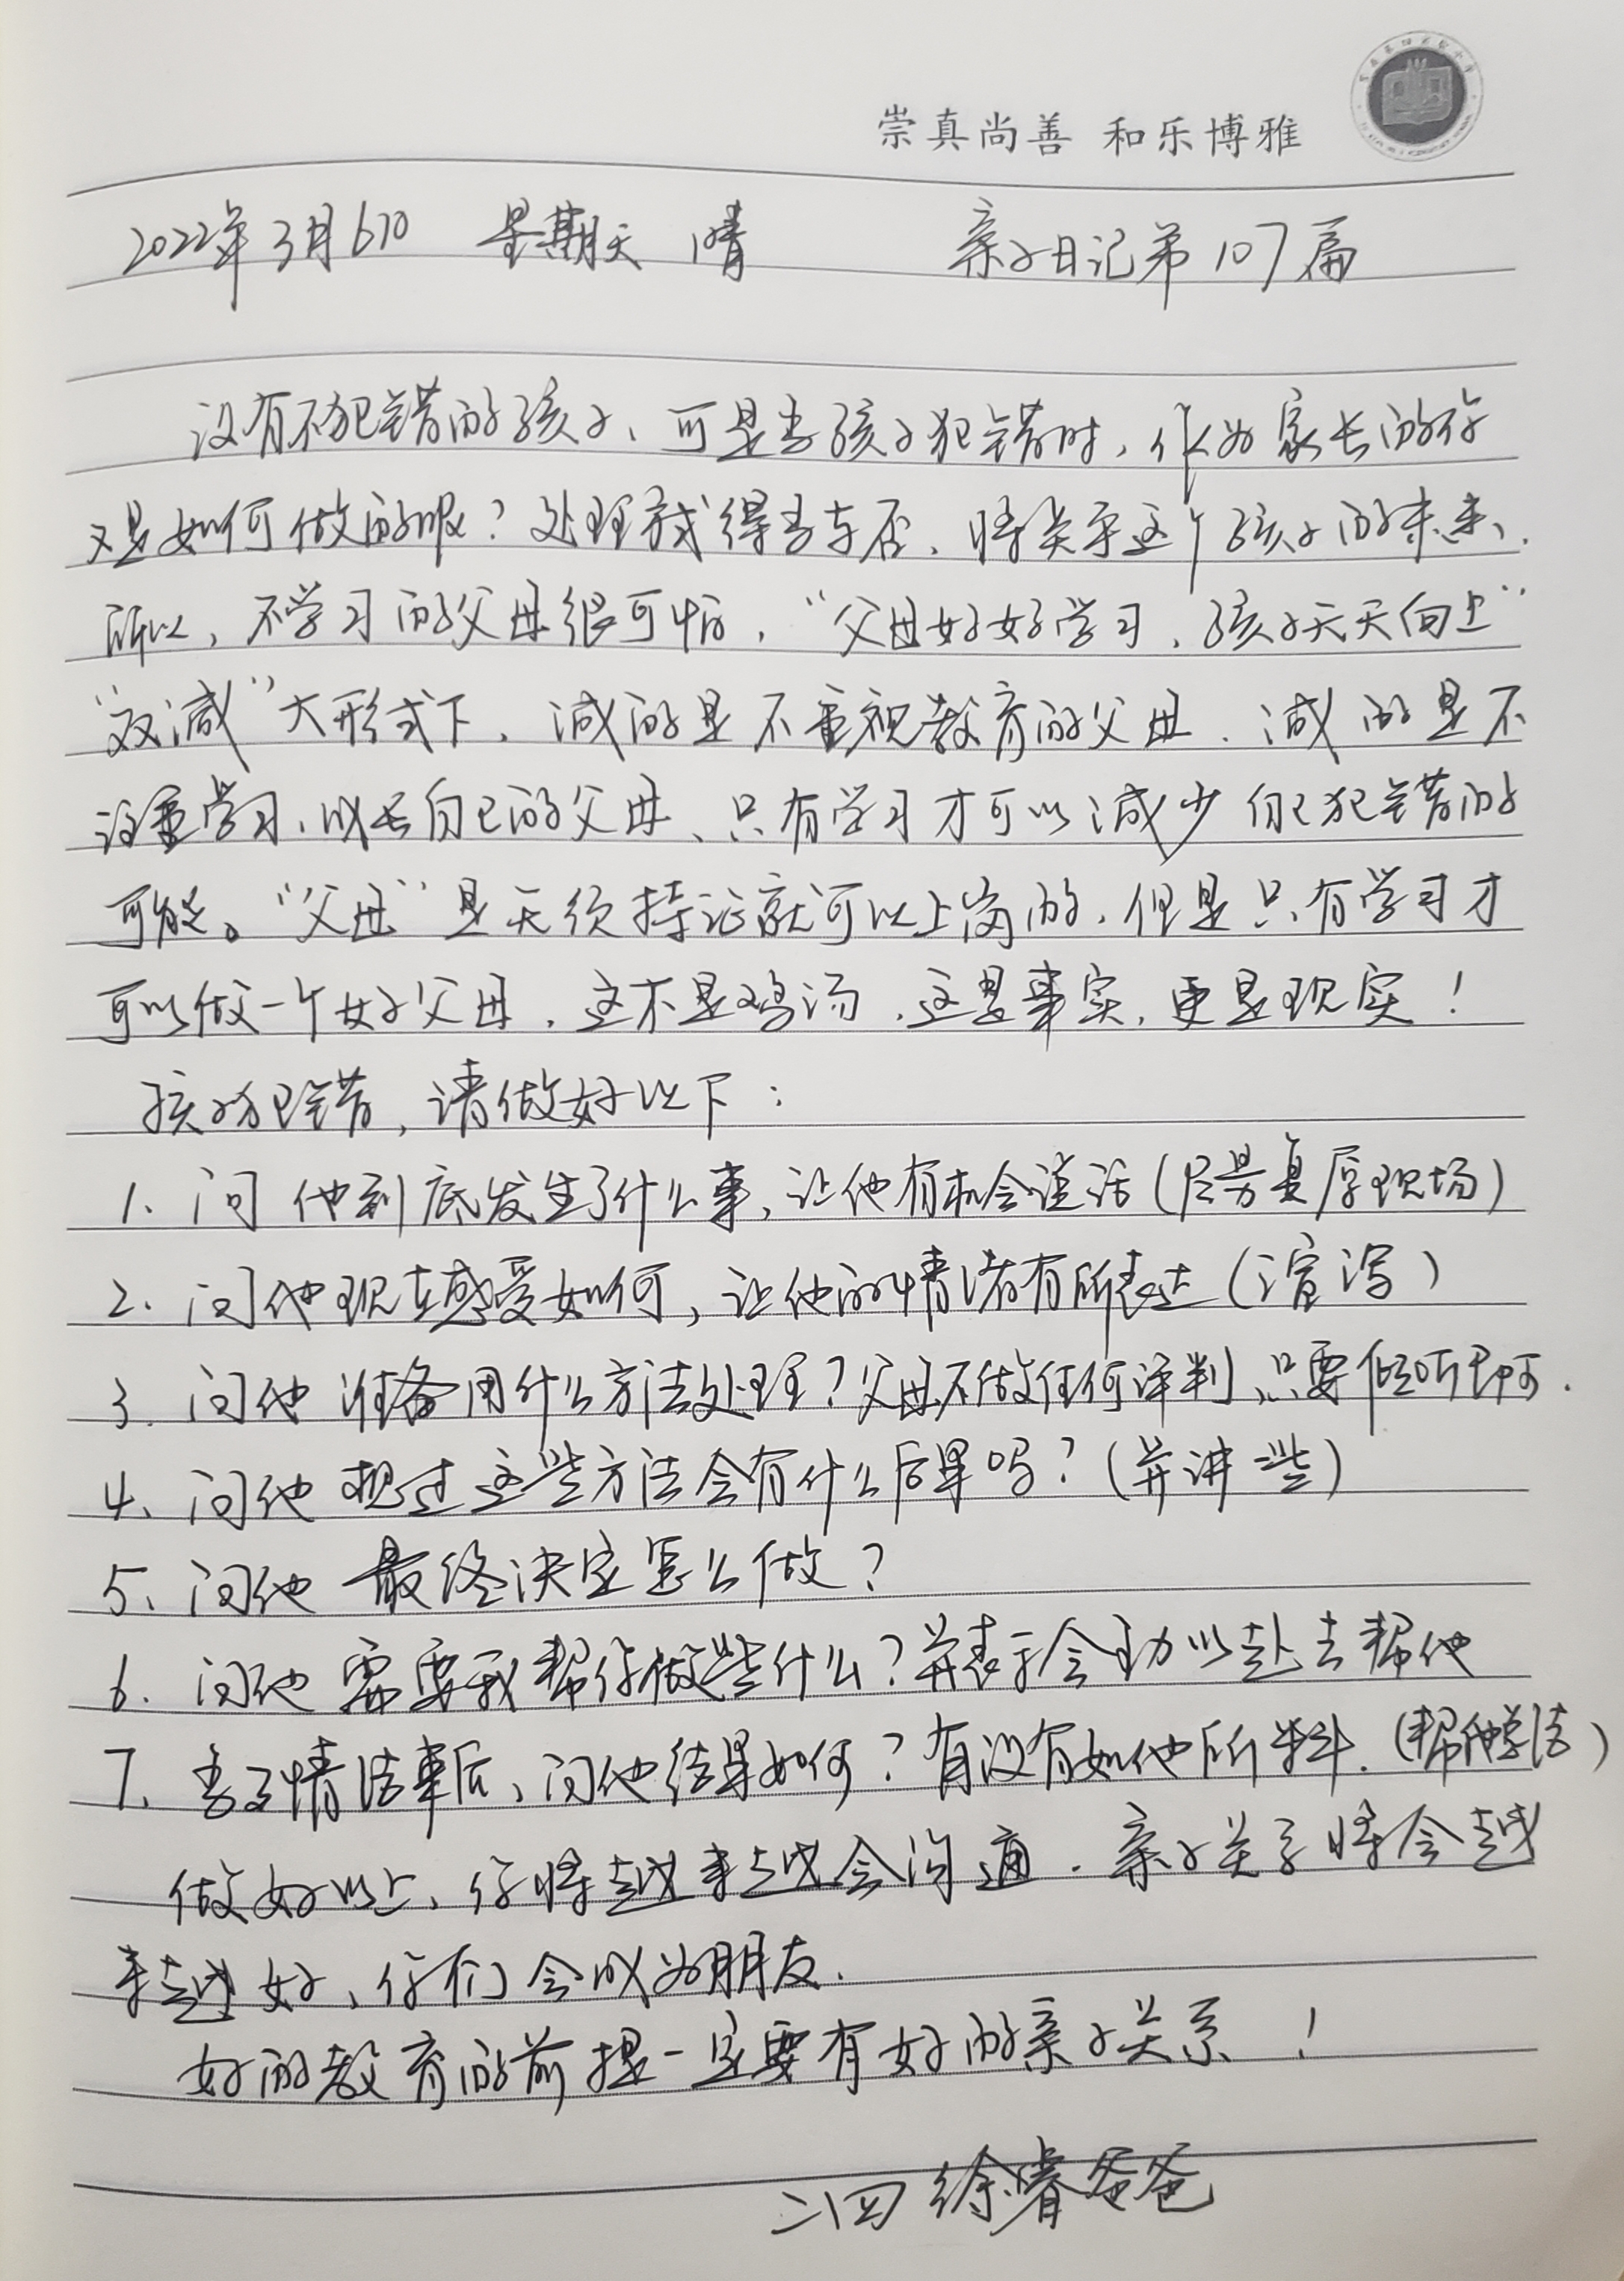 崇真尚善 和乐博雅
2022年3月6日 星期天 晴 亲子日记第107篇
没有不犯错的孩子、可是当孩子犯错时，作为家长的你
又是如何做的呢？处理方式得当与否、将关乎这个孩子的未来、
所以，不学习的父母很可怕，“父母好好学习，孩子天天向上”
“双减”大形式下、减的是不重视教育的父母．减的是不
注重学习、成长自己的父母、只有学习才可以减少自己犯错的
可能。“父母”是无须持证就可以上岗的、但是只有学习才
可以做一个好父母，这不是鸡汤，这是事实，更是现实！
孩子犯错，请做好以下：
1、问他到底发生了什么事，让他有机会说话（尽量复原现场）
2、问他现在感受如何，让他的情绪有所表达（渲泻）
3、问他准备用什么方法处理？父母不做任何评判、只要倾听即可．
4、问他想过这些方法会有什么后果吗？（并讲一些）
5、问他最终决定怎么做？
6、问他需要我帮你做些什么？并表示全力以赴去帮他
7、当了情结束后、问他结果如何？有没有如他所料．（帮他总结）
做好以上、你将越来越会沟通．亲子关系将会越
来越好、你们会成为朋友．
好的教育的前提一定要有好的亲子关系！
二四 徐睿爸爸